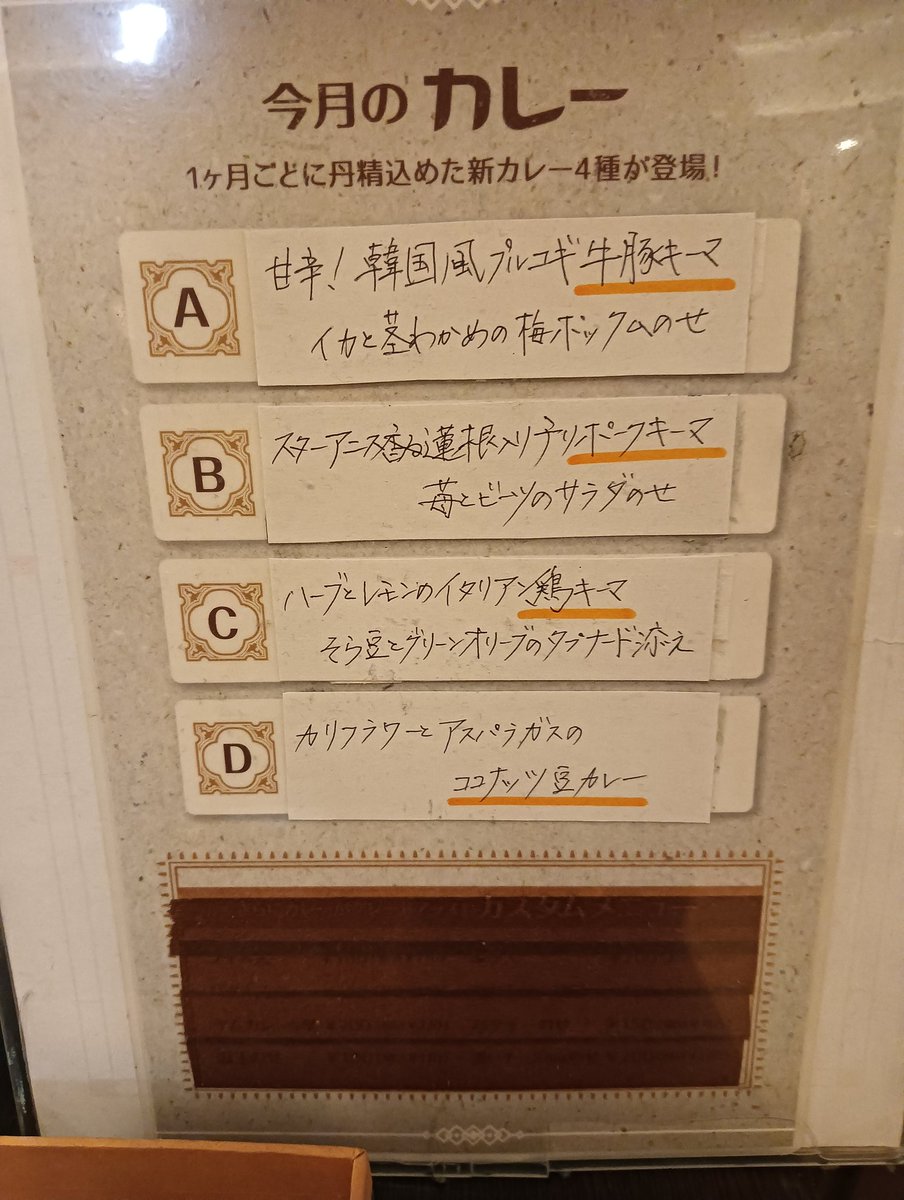 今月のカレー
1ヶ月ごとに丹精込めた新カレー4種が登場!
A
甘辛!韓国風プルコギ牛豚キーマ
イカと茎わかめの梅ポックムのせ
B
スターアニス香る蓮根入りチリポークキーマ
苺とビーツのサラダのせ
C
ハーブとレモンのイタリアン鶏キーマ
そら豆とグリーンオリーブのタプナード添え
D
カリフラワーとアスパラガスの
ココナッツ豆カレー